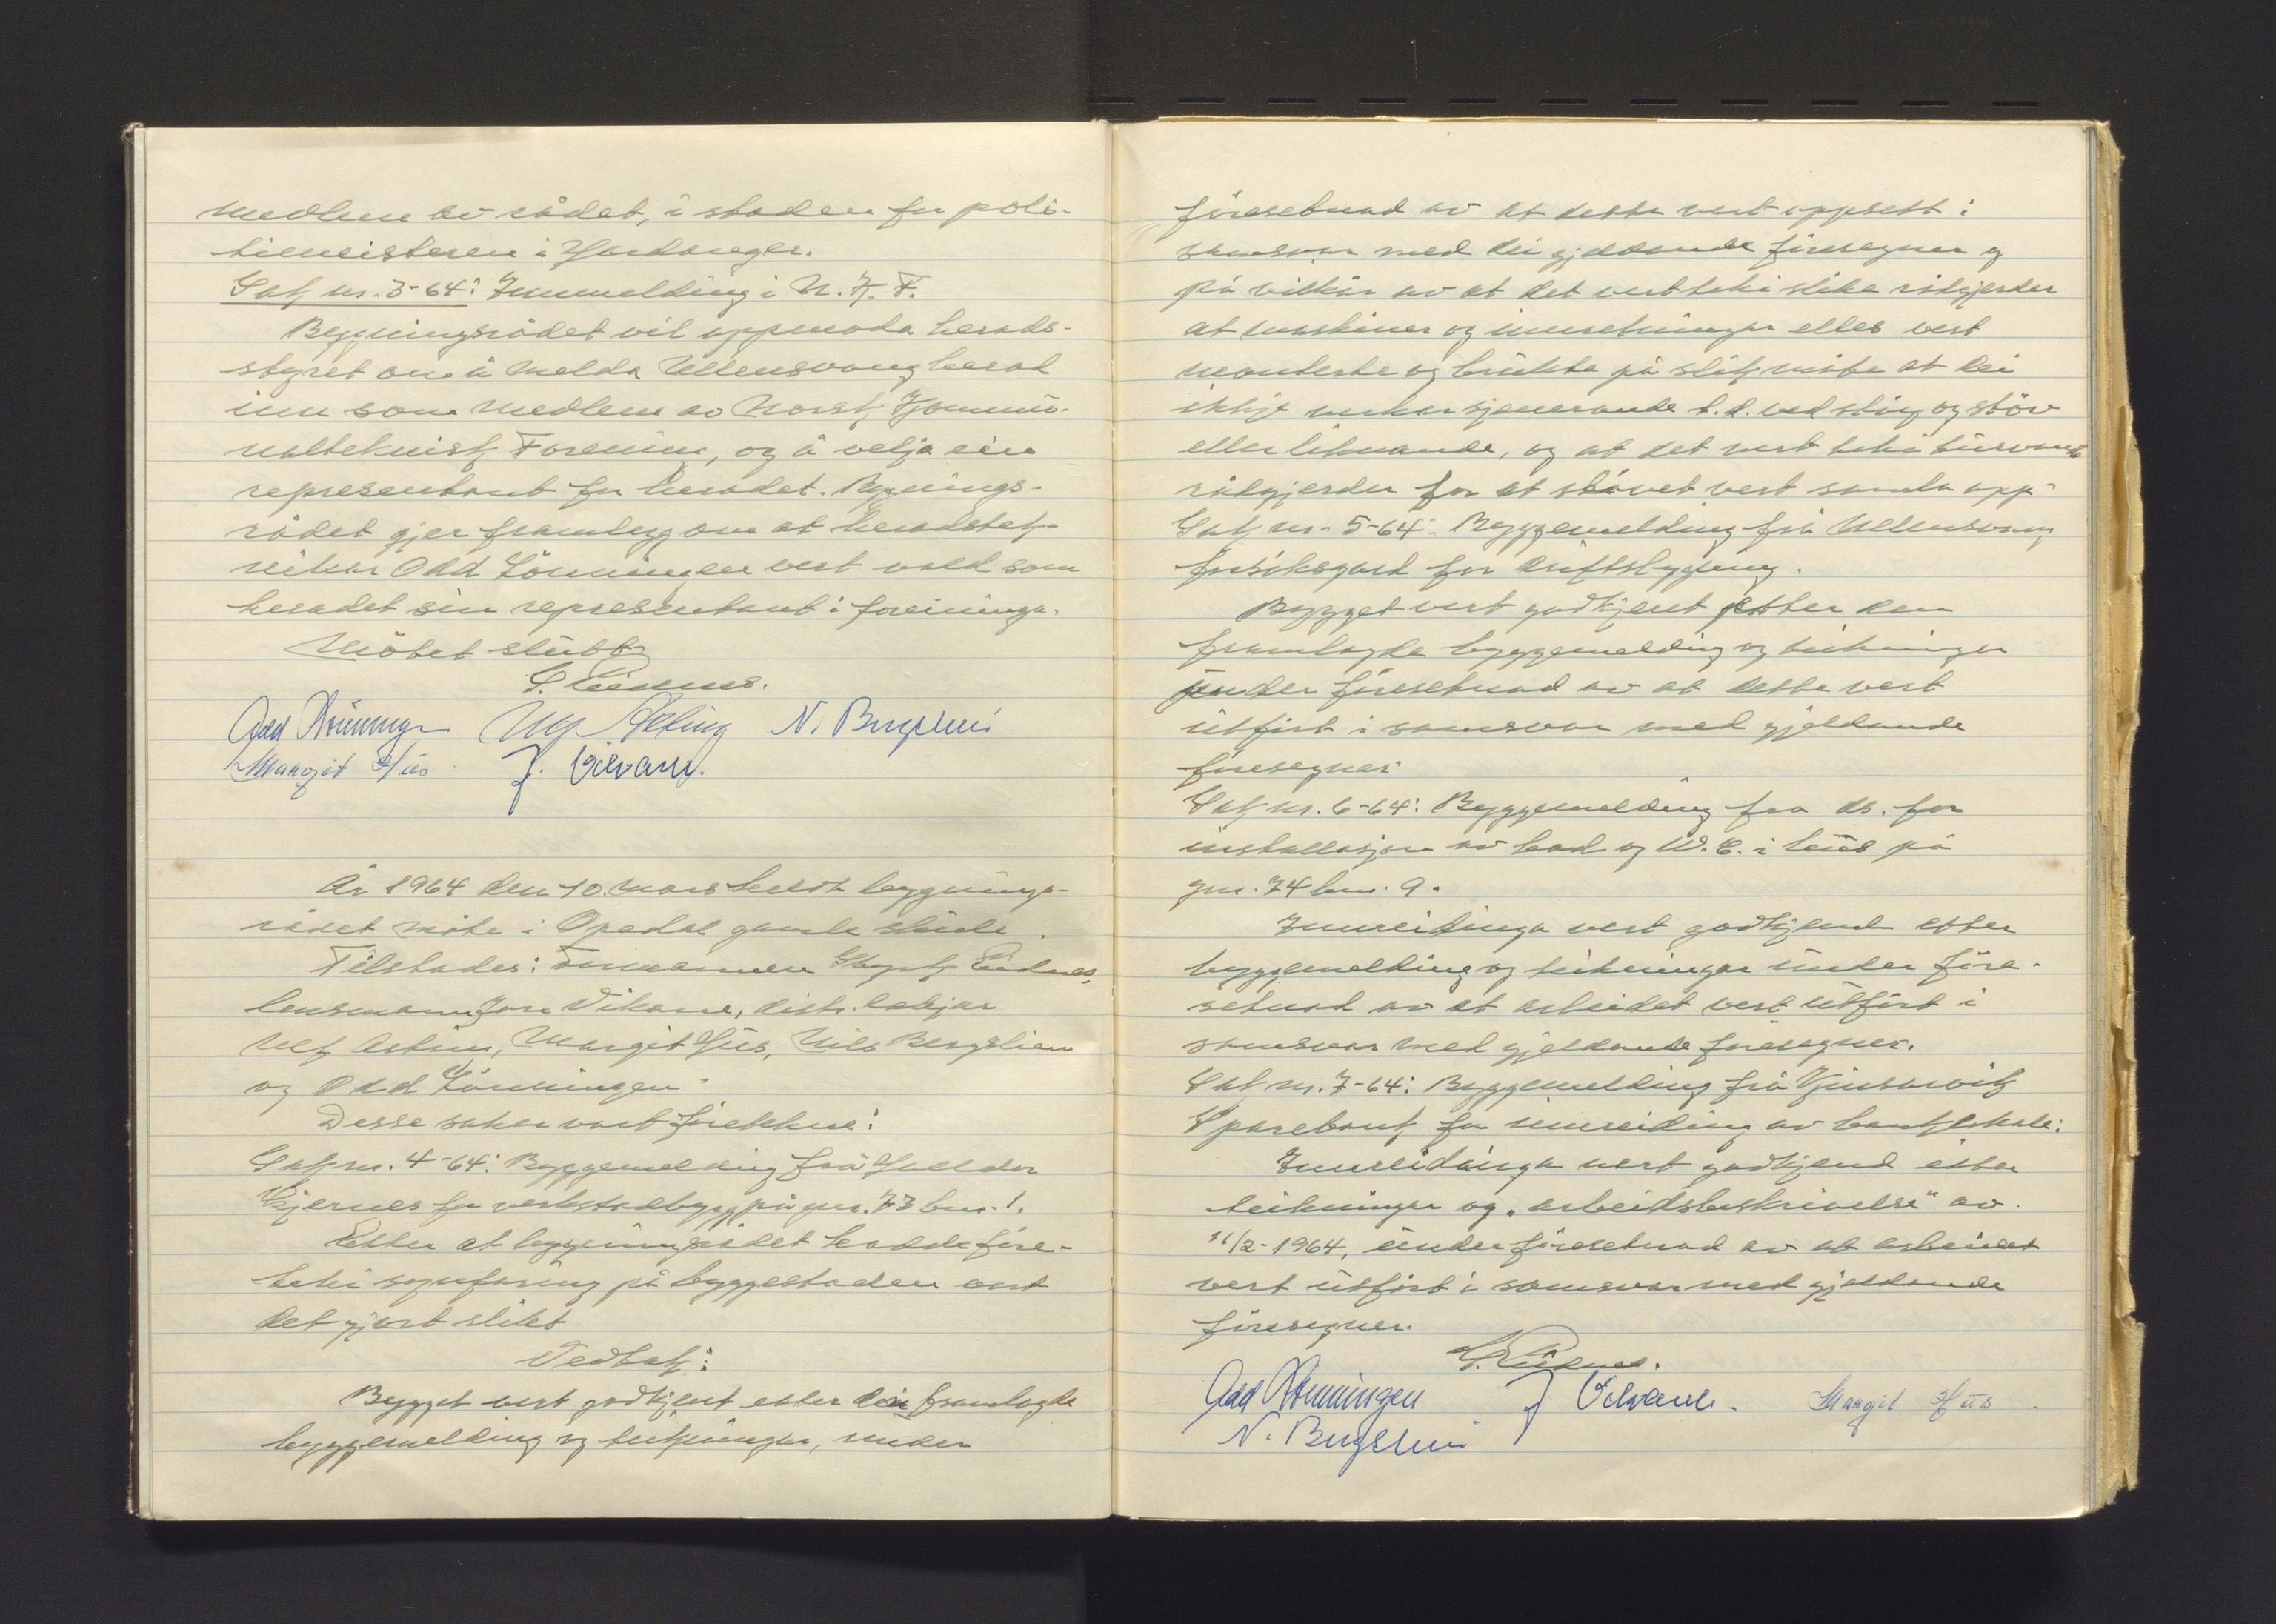 medlem av rådet, i staden for poli-
timeisteren i Hardanger.
Sak nr. 3-64: Innmelding i N.K.F.
Bygningsrådet vil oppmoda herads-
styret om å melda Ullensvang herad
inn som medlem av Norsk Kommu-
nalteknisk Forening, og å velja ein
representant for heradet. Bygnings-
rådet gjer framlegg om at heradstek-
nikar Odd Lönningen vert vald som
heradet sin representant i foreininga.
Mötet slutt
Odd Lönningen N. Bergslien
Margit Hus J. Vikane.
År 1964 den 10. mars heldt bygnings-
rådet möte i Opedal gamle skule.
Tilstades: Formannen
lensmann Jon Vikane, distr.
Margit Hus, Nils Bergslien
og Odd Lönningen.
Desse saker vart företekne:
Sak nr. 4-64: Byggemelding frå Halldor
for verkstadbygg på gnr. 73 bnr. 1.
Etter at bygningsrådet hadde före-
teki synfaring på byggestaden vart
det gjort slikt
Vedtak:
Bygget vert godkjent etter den framlagde
byggemelding og teikningar, under
föresetnad av at dette vert oppsett i
samsvar med dei gjeldande föresegner og
på vilkår av at det vert teki slike rådgjerder
at maskiner og innretningar elles vert
monterte og brukte på slik måte at dei
ikkje verkar sjenerande t.d. ved stöy og støv
eller liknande, og at det vert teki turvande
rådgjerder for at stövet vert samla opp.
Sak nr. 5-64: Byggemelding frå Ullensvang
forsöksgard for driftsbygning.
Bygget vert godkjent etter den
framlagde byggemelding og teikningar
under föresetnad av at dette vert
utfört i samsvar med gjeldande
föresegner.
Sak nr. 6-64: Byggemelding fra ds. for
installasjon av bad og W.C. i hus på
gnr. 74 bnr. 9.
Innreidinga vert godkjend etter
byggemelding og teikningar under före-
setnad av at arbeidet vert utfört i
samsvar med gjeldande föresegner.
Sak nr. 7-64: Byggemelding frå Kinsarvik
Sparebank for innreiding av banklokale:
Innreidinga vert godkjend etter
teikninger og "arbeidsbeskrivelse" av
11/2-1964, under föresetnad av at arbeidet
vert utfört i samsvar med gjeldande
föresegner.
Odd Lönningen J Vikane. Margit Hus.
N. Bergslien